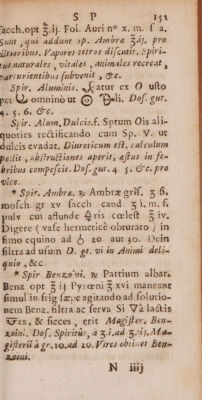 S P 151
sacch.opt ℥.ij. Fol. Auri n° x. m. f a.
Sunt, qui addunt sp. Ambræ ʒ.ij. pro
ditioribus. Vapores tetros discutit, Spiri-
tus naturales, vitales, animales recreat,
parturientibus subvenit, &c.
Spir. Aluminis. fiatur ex O usto
per omninò ut Dos. gut.
4. 5. 6. &c.
Spir. Alum, Dulcis. f. Sptum Ois ali-
quoties rectificando cum Sp. V. ut
dulcis evadat. Diureticum est, calculum
pellit, obstructiones aperit, æstus in fe-
bribus compescit. Dos. gut. 4 5. &c. pro
vice.
* Spir. Ambræ. ℞ Ambræ gris. ʒ 6.
mosch gr xv sacch cand. ʒ i. m. f.
pulv cui affunde ris cœlest ℥ iv.
Digere (vase hermeticè obturato) in
fimo equino ad 20 aut 30. Dein
filtra ad usum D. gt. vi in Animi deli-
quio, &c
* Spir Benzoini. ℞ Partium albar.
Benz opt ℥ ij Pyrœni ℥ xvi maneant
simul in frig sæpe agitando ad solutio-
nem Benz. filtra ac serva Si lactis
es, & sicces, erit Magister. Ben-
zoini. Dos. Spiritus, à ʒ.i.ad ʒ.ij.Ma-
gisterii à gr.10.ad 20. Vires obtinet Ben-
zoini.
N iiij